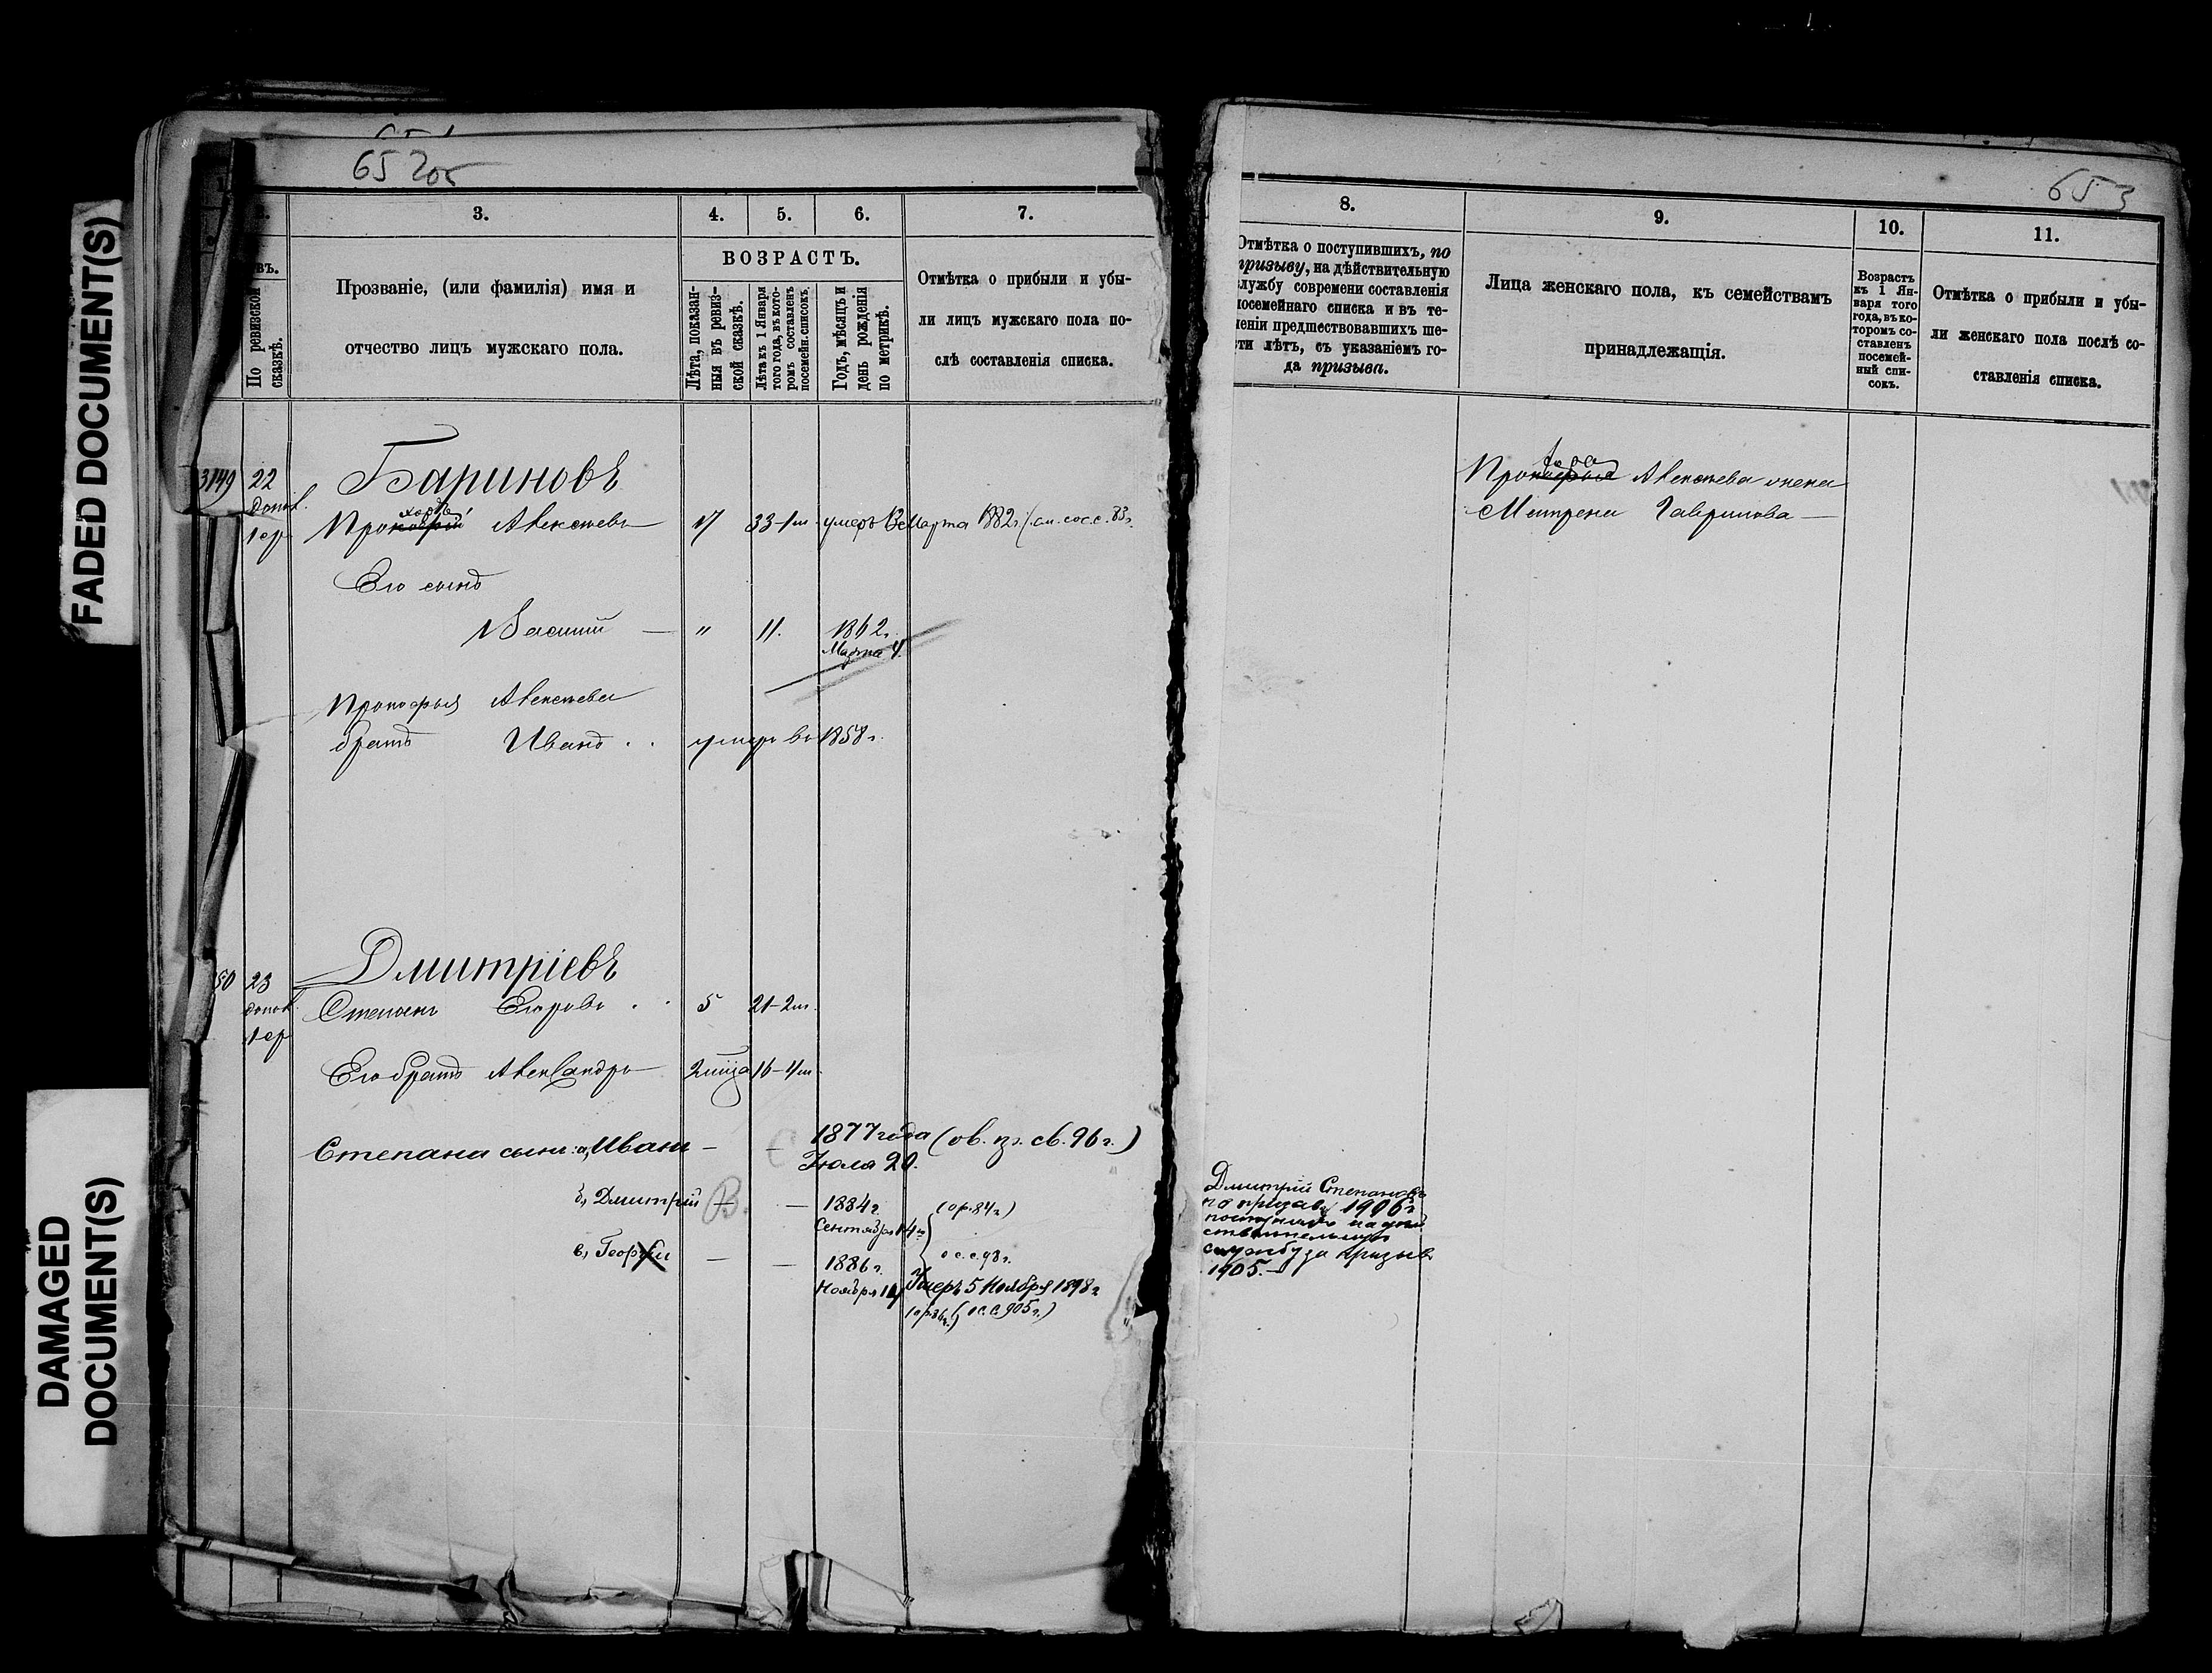 FADED DOCUMENT(S)
DAMAGED
DOCUMENT(S)
652об
3.
4.
5.
6.
7.
ВОЗРАСТЪ.
По ревизской
сказкѣ.
Прозваніе, (или фамилія) имя и
отчество лицъ мужскаго пола.
Лѣта, показан-
ныя въ ревиз-
ской сказкѣ.
Лѣта къ 1 Января
того года, въ кото-
ромъ составленъ
посемейн. списокъ.
Годъ, мѣсяцъ и
день рожденія
по метрикѣ.
Отмѣтка о прибыли и убы-
ли лицъ мужскаго пола по-
слѣ составленія списка.
3149 22 Бариновъ
допол.
1 ср Алексѣевъ 17 33-1 м. умеръ Марта 1882 г.
Его сынъ
Василий — " 11. 1862 г.
Марта 4.
Прокофья Алексѣева
братъ Иванъ . . умеръ въ 1858 г.
50 23 Дмитріевъ
допол.
1 ср
Степанъ Егоровъ . . 5 21-2 м.
Его братъ Александръ 16-4 м.
Степана сын: а, Иванъ — 1877 года (ов. пр. св. 96 г.)
Іюля 20.
б, Дмитрий В. — 1884 г. (ор. 84 г)
Сентября 14
в, Георгий — — 1886 г. о с. с. 98 г.
Ноября Умеръ 5 Ноября 1898 г
(о с. с. 905 г.)
653
8.
9.
10.
11.
Отмѣтка о поступившихъ, по
призыву, на дѣйствительную
службу современи составленія
посемейнаго списка и въ те-
ченіи предшествовавшихъ ше-
сти лѣтъ, съ указаніемъ го-
да призыва.
Лица женскаго пола, къ семействамъ
принадлежащія.
Возрастъ
къ 1 Ян-
варя того
года, въ ко-
торомъ со-
ставленъ
посемей-
ный спи-
сокъ.
Отмѣтка о прибыли и убы-
ли женскаго пола послѣ со-
ставленія списка.
Алексѣева жена
Матрена Гаврилова —
Дмитрій Степановъ
по призыву 1906 г
поступилъ на дѣй
ствительную
службу за призывъ
1905. —